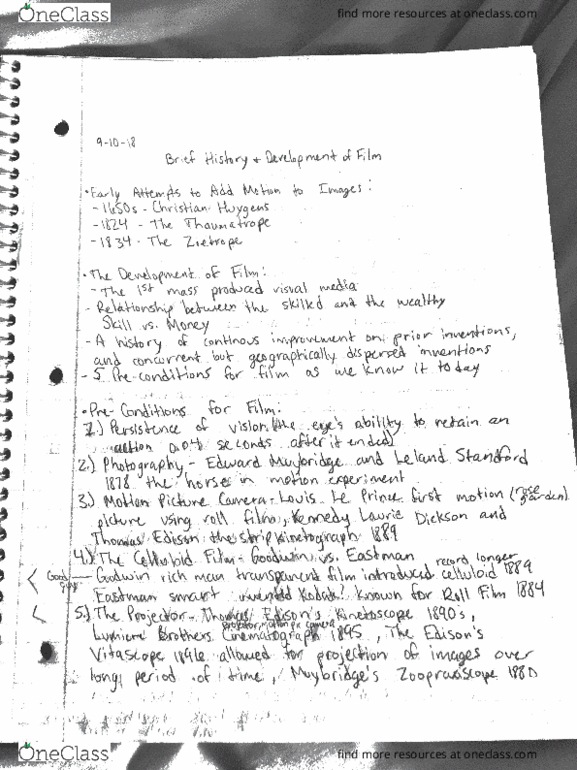 OneClass
find more resources at oneclass.com
9-10-18
Brief History + Development of Film
• Early Attempts to Add Motion to Images:
- 1650s - Christian Huygens
- 1824 - The Thaumatrope
- 1834 - The Zietrope
• The Development of Film:
- The 1st mass produced visual media
- Relationship between the skilled and the wealthy
Skill vs. Money
- A history of continous improvement on prior inventions,
and concurrent but geographically dispersed inventions
- 5 Pre-conditions for film as we know it today
• Pre-Conditions for Film:
1.) Persistence of vision (the eye's ability to retain an
action 0.04 seconds after it ended)
2.) Photography - Edward Muybridge and Leland Standford
1878 the horses in motion experiment
3.) Motion Picture Camera - Louis Le Prince first motion (rose garden)
picture using roll film, Kennedy Laurie Dickson and
Thomas Edison the strip kinetograph 1889
4.) The Celluloid Film - Goodwin vs. Eastman record longer
Good Godwin rich man transparent film introduced celluloid 1889
Eastman smart invented Kodak! known for Roll Film 1884
5.) The Projector - Thomas Edison's Kinetoscope 1890's,
Lumiere Brothers Cinematograph 1895, The Edison's
Vitascope 1896 allowed for projection of images over
long period of time, Muybridge's Zoopraxiscope 1880
OneClass
find more resources at oneclass.com